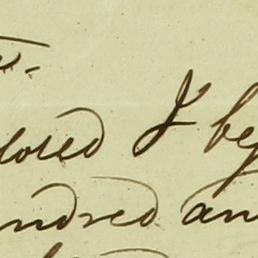 losed I beg
ndred an